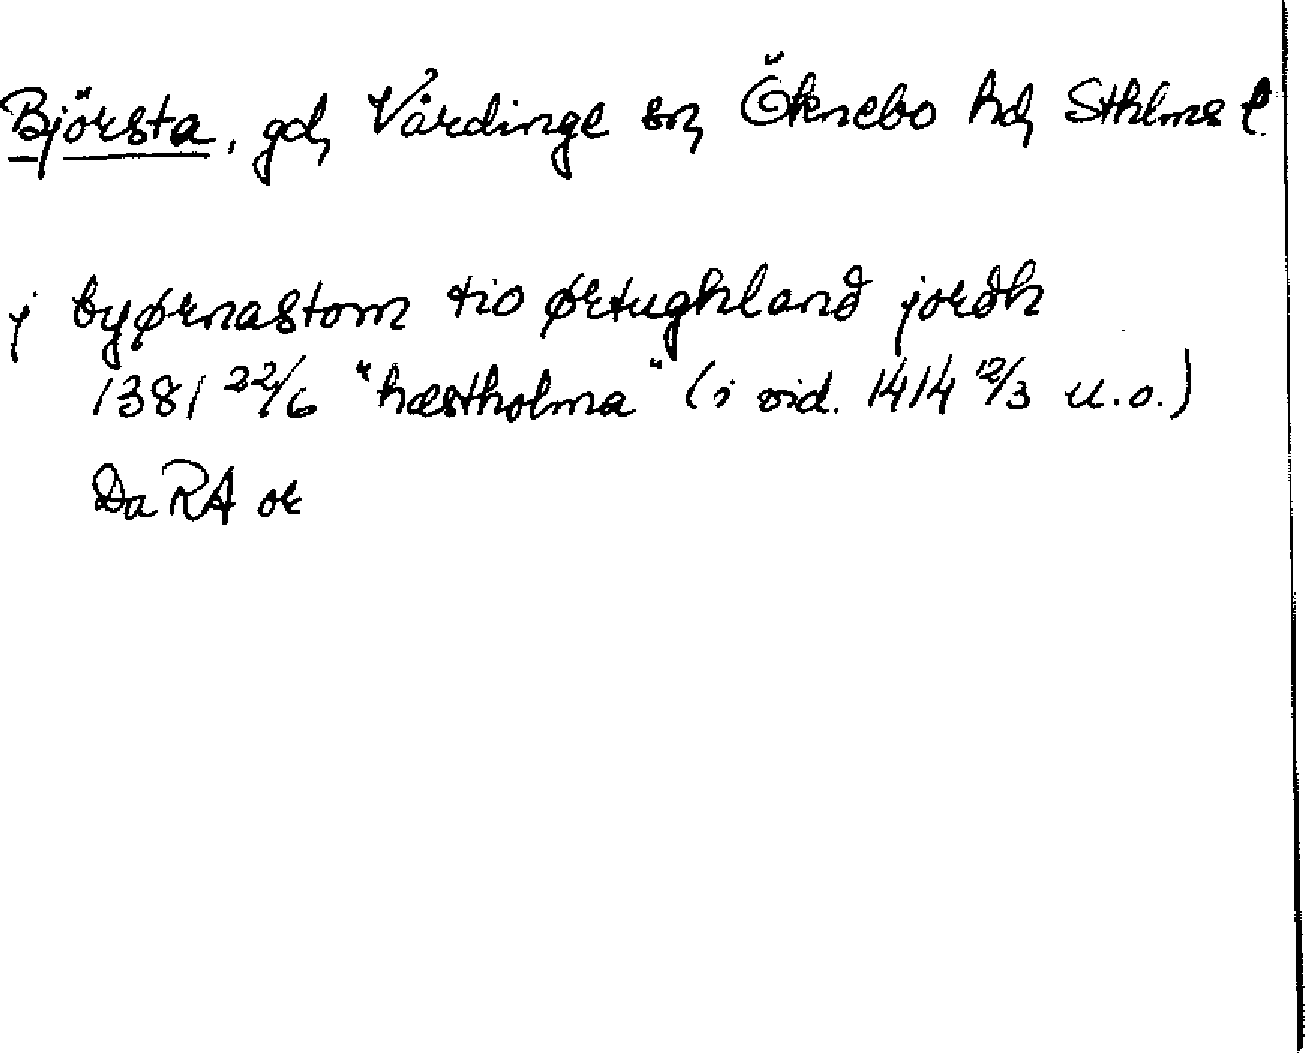 Björsta, gd, Vårdinge sn, Öknebo hd, Sthlms l.
j byørnastom tio ørtughland jordh
1381 22/6 "hæstholma" (i vid. 1414 12/3 u.o.)
Da RA or